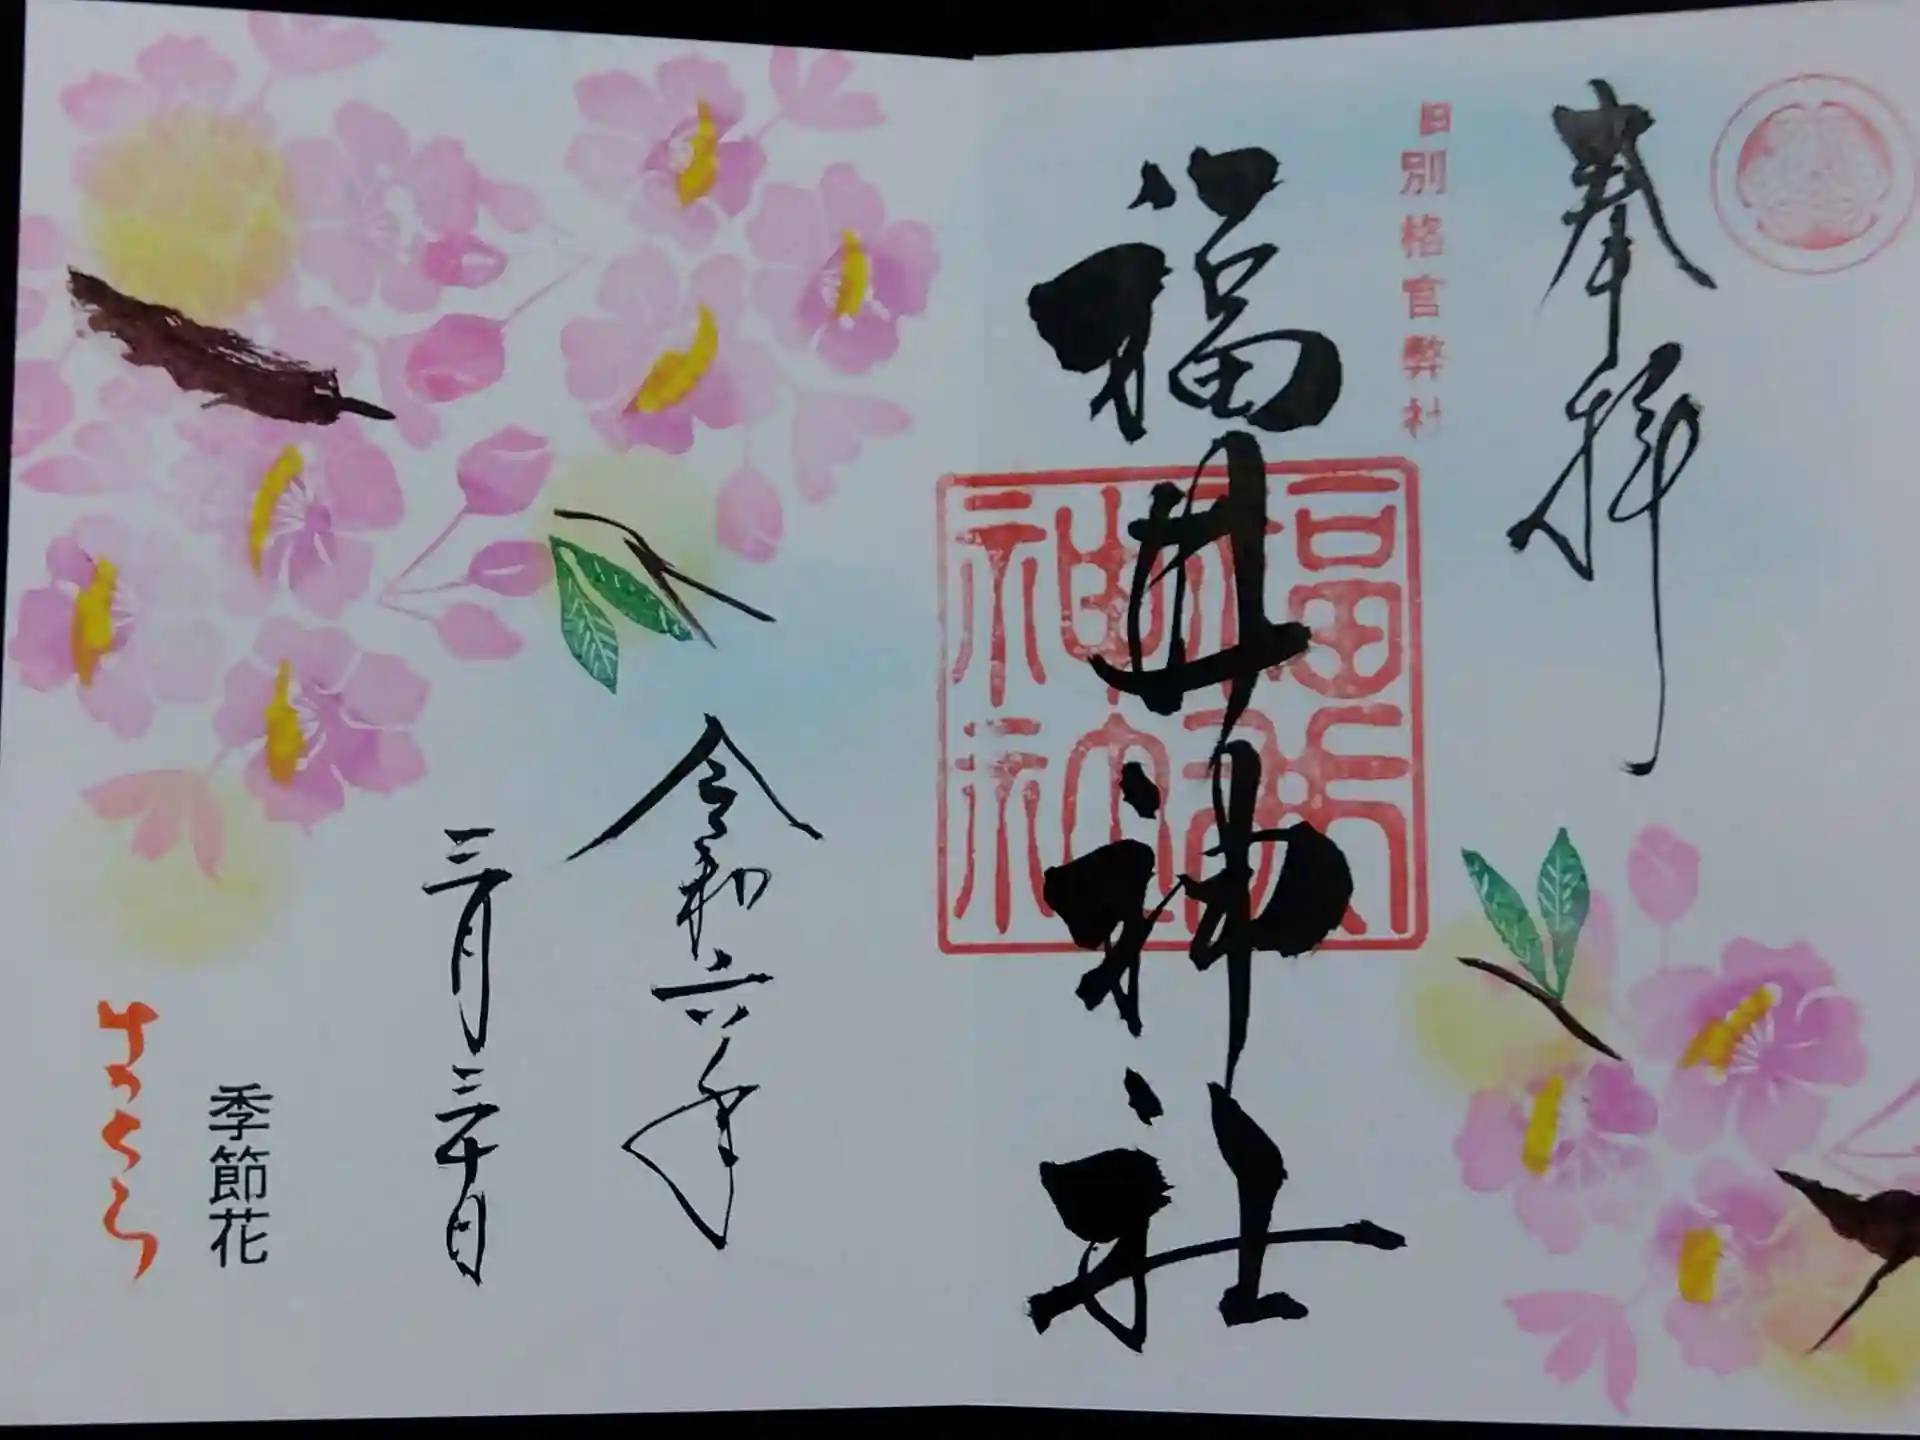 奉拝
旧別格官弊社
福井神社
令和六年
三月三十日
季節花
さくら